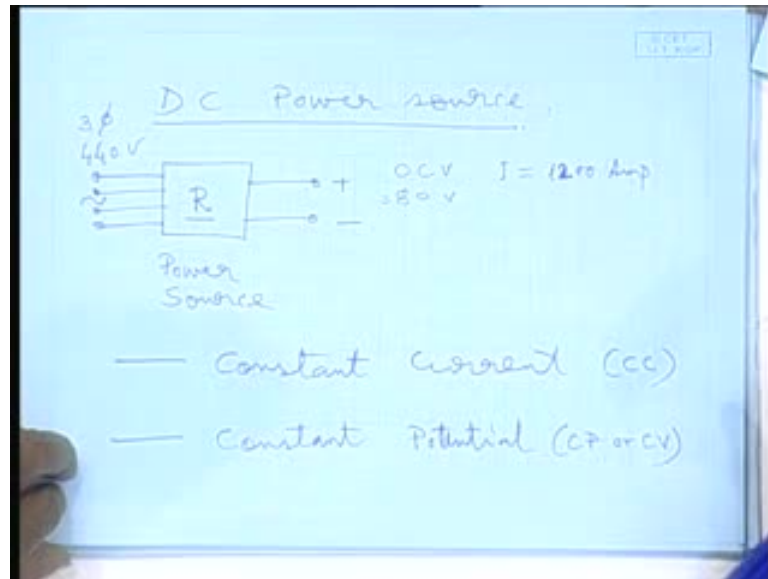 DC Power source
3φ
440V
~ R + OCV I = 1200 Amp
80 V
—
Power
Source
— Constant Current (CC)
— Constant Potential (CP or CV)